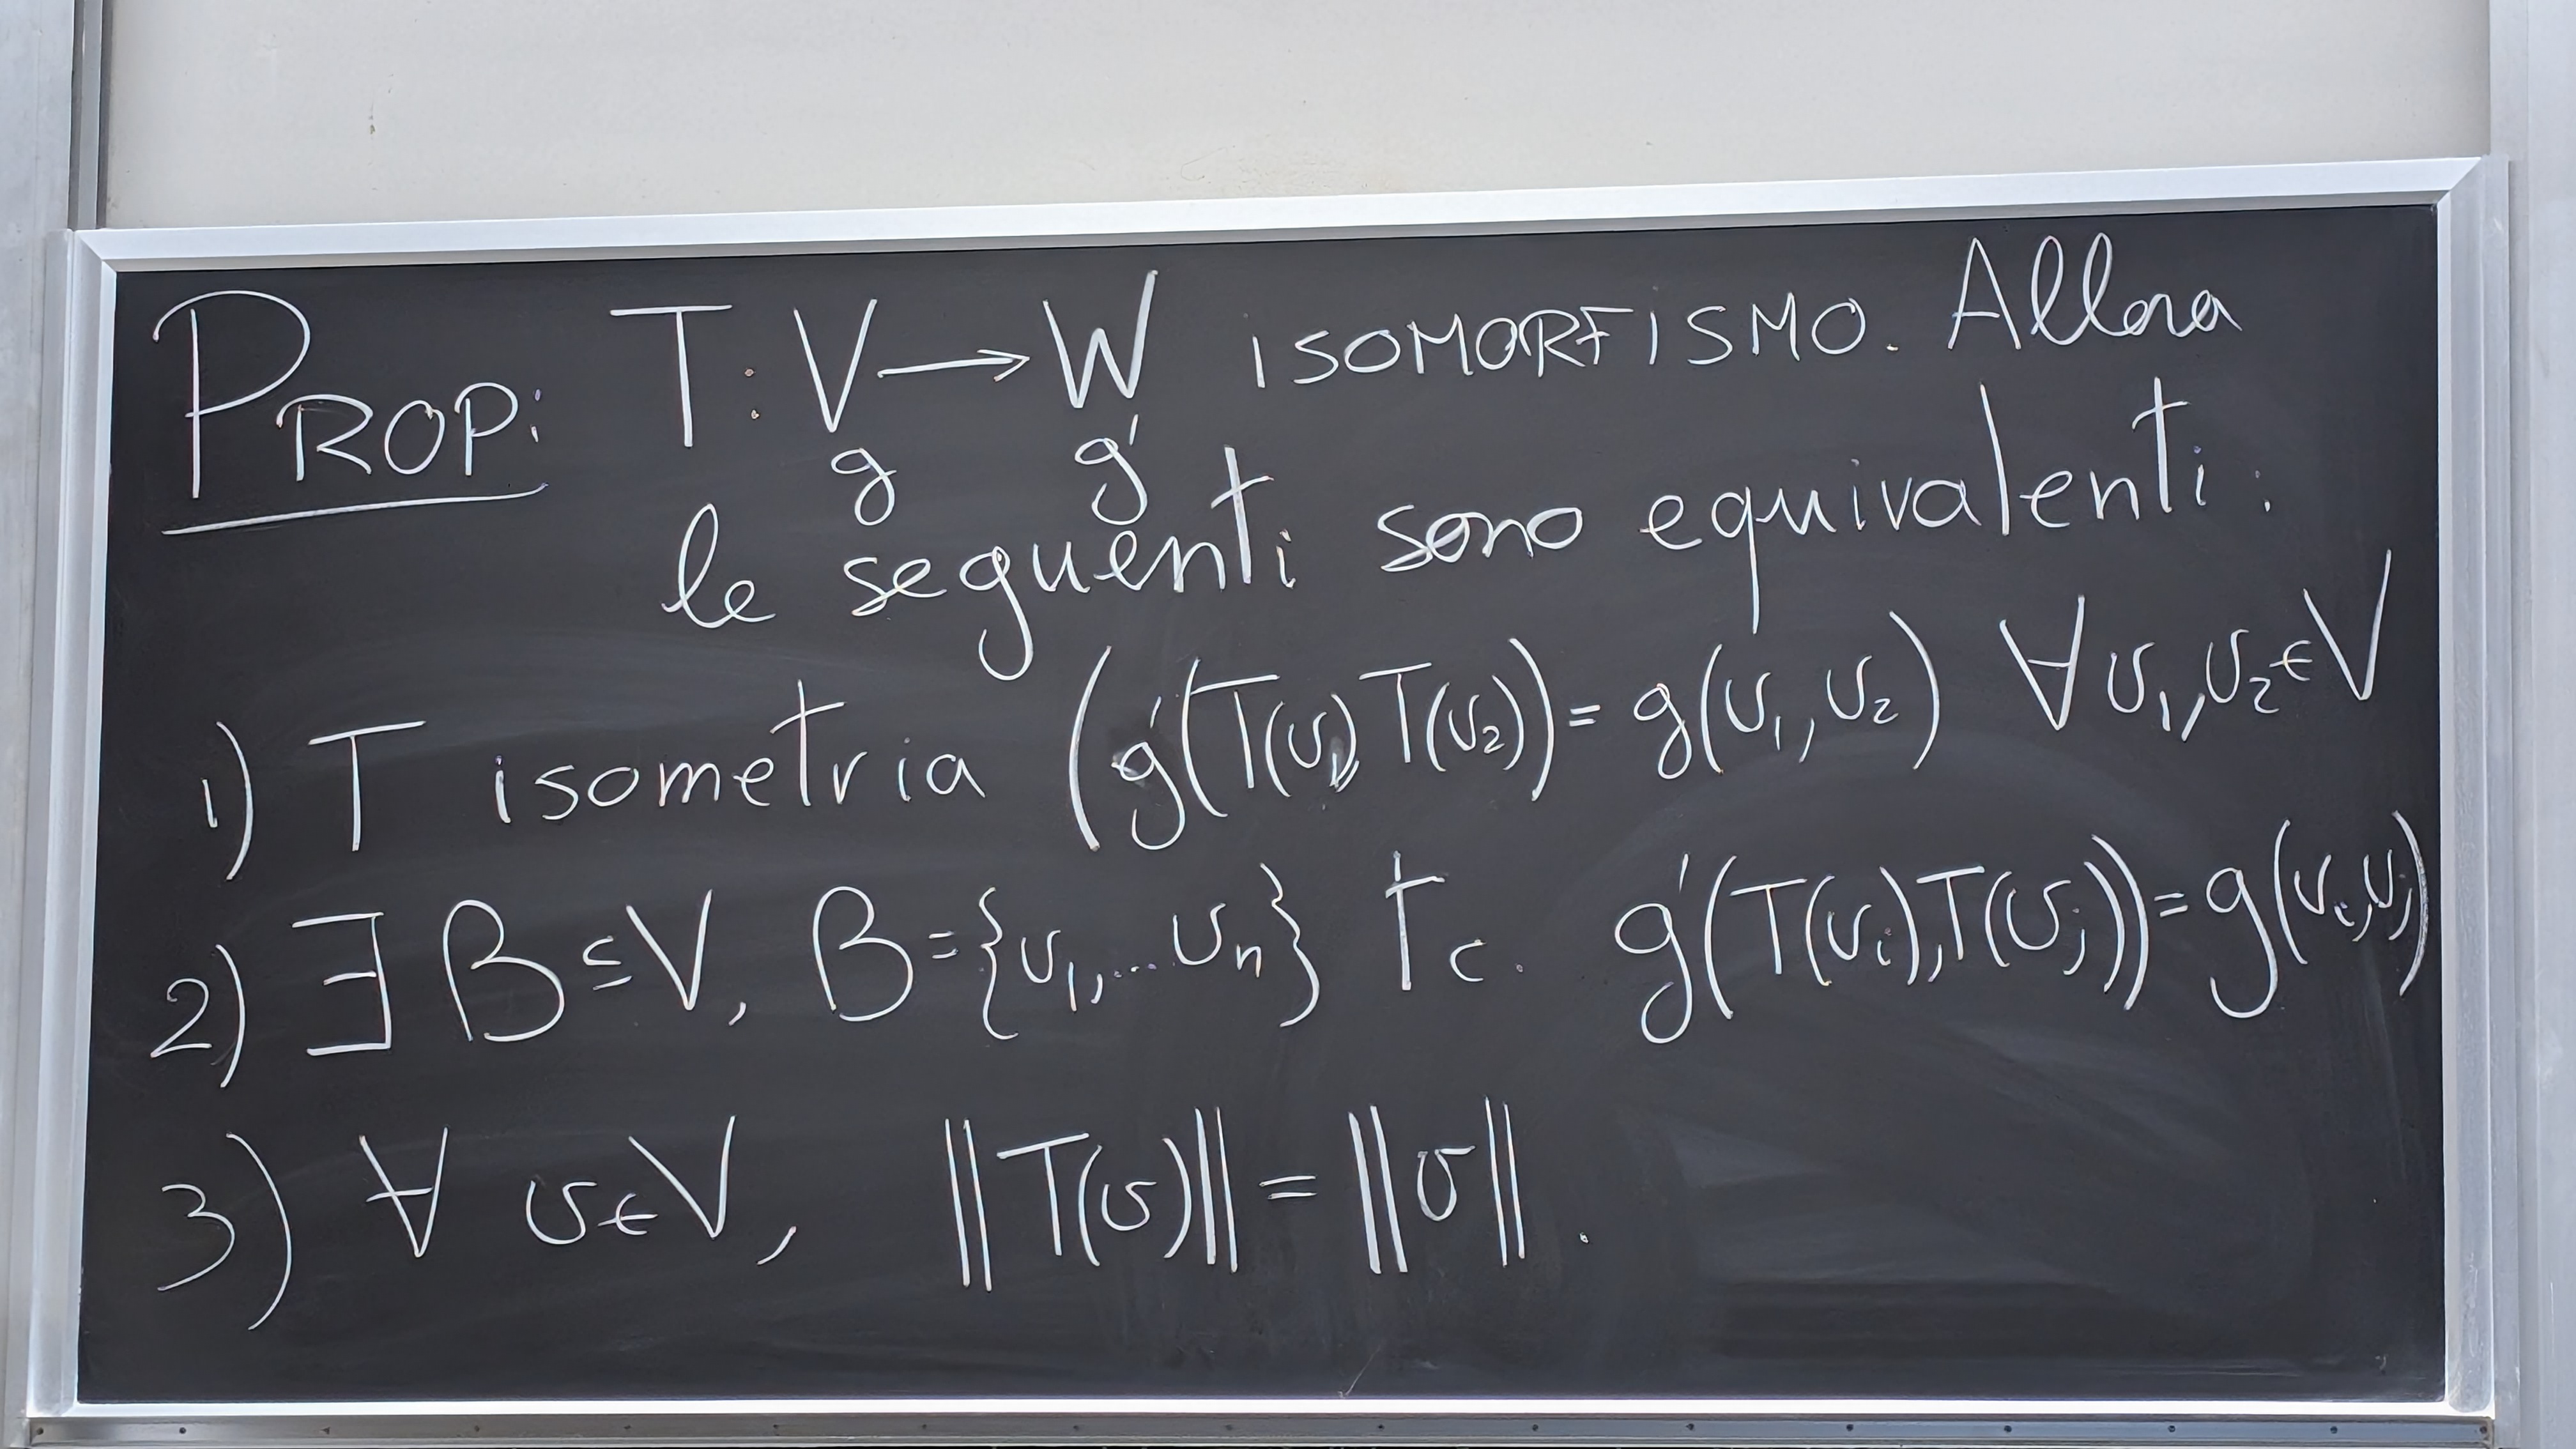 PROP: T: V → W ISOMORFISMO. Allora
g g'
le seguenti sono equivalenti:
1) T isometria (g'(T(v₁), T(v₂)) = g(v₁, v₂)) ∀ v₁, v₂ ∈ V
2) ∃ B ⊆ V, B = {v₁, ... vₙ} tc. g'(T(vᵢ), T(vⱼ)) = g(vᵢ, vⱼ)
3) ∀ v ∈ V, ||T(v)|| = ||v||.